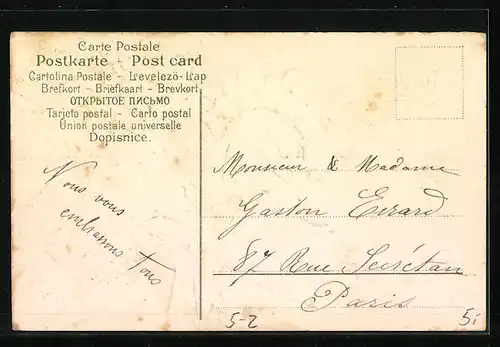 Carte Postale
Postkarte - Post card
Cartolina Postale - Levelező-Lap
Brefkort - Briefkaart - Brevkort
ОТКРЫТОЕ ПИСЬМО
Tarjeta postal - Carto postal
Union postale universelle
Dopisnice.
Nous vous
embrassons
Tous
Monsieur & Madame
Gaston Evrard
87 Rue Secrétan
Paris
5-2